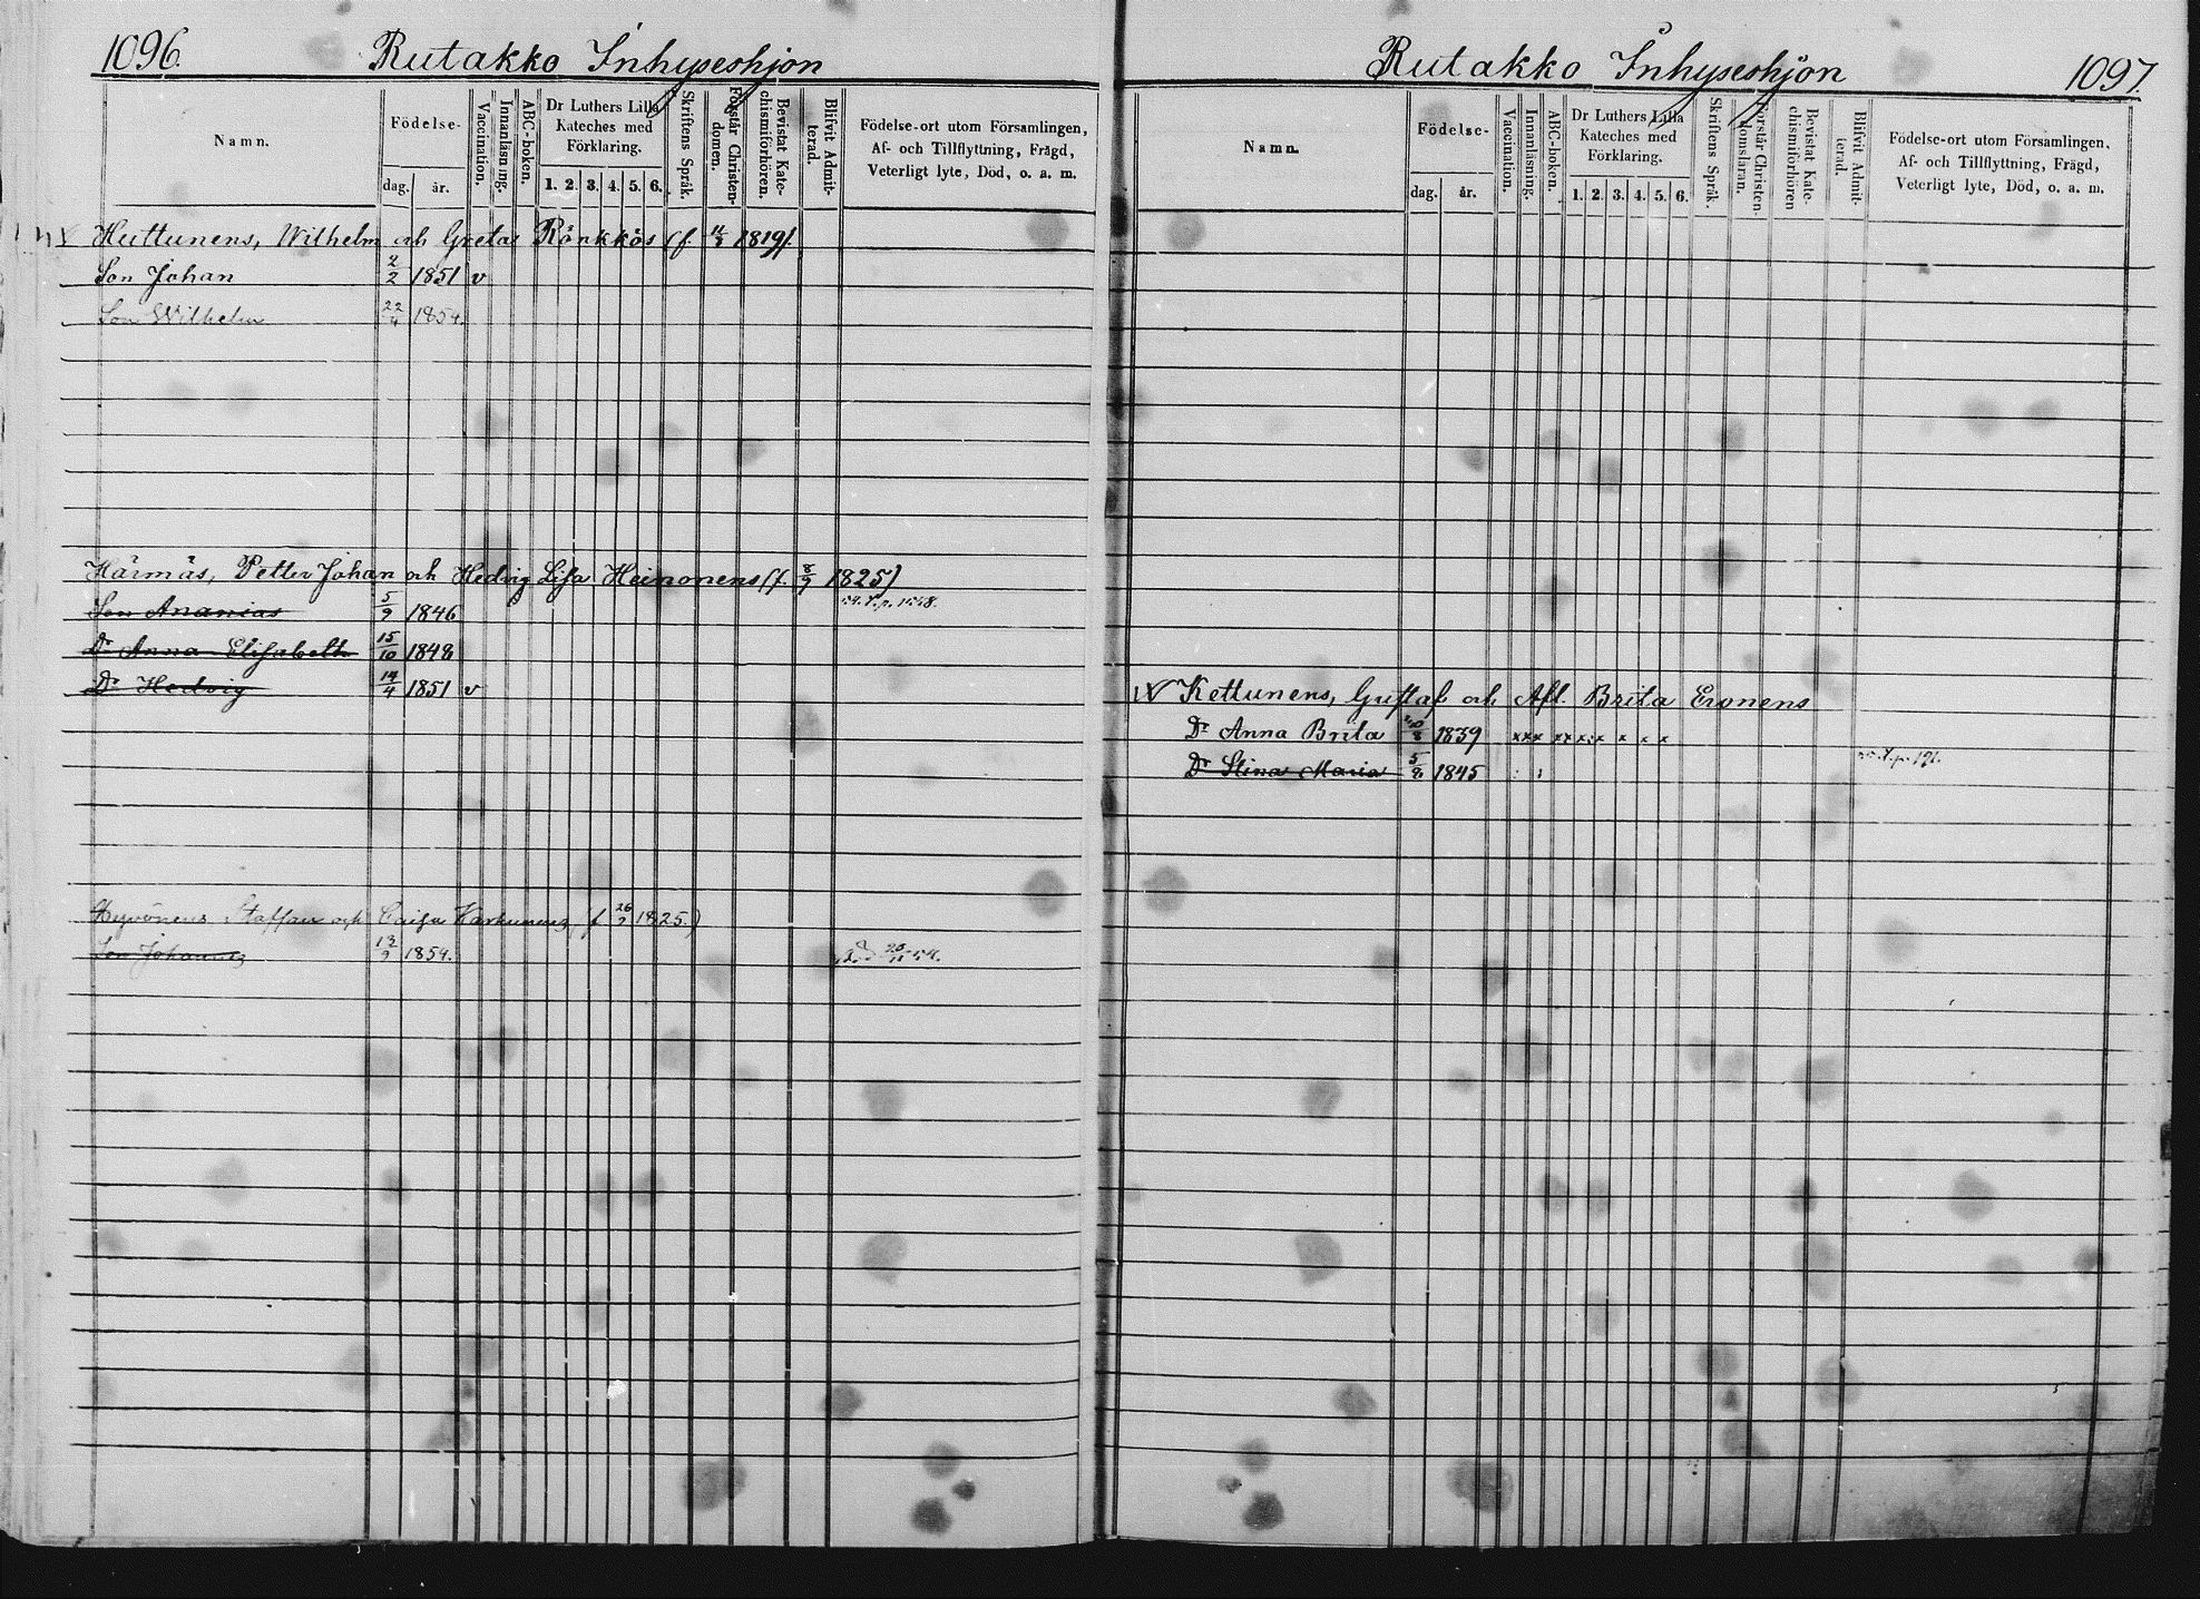 1096.
Rutakko Inhyseshjon
Namn.
Födelse-
dag. år.
Vaccination.
Innanläsning.
ABC-boken.
Dr Luthers Lilla
Kateches med
Förklaring.
1. 2. 3. 4. 5. 6.
Skriftens Språk.
Förstår Christen-
domen.
Bevistat Kate-
chismiförhören.
Blifvit Admit-
terad.
Födelse-ort utom Församlingen,
Af- och Tillflyttning, Frägd,
Veterligt lyte, Död, o. a. m.
Huttunens, Wilhelm och Greta Rönkkös (f. 1819).
Son Johan 2/2 1851 v
Son Wilhelm 22/4 1854.
Härmäs, Petter Johan och Hedvig Lisa Heinonens (f. 8/9 1825)
Son Ananias 5/9 1846
Dr Anna Elisabeth 15/10 1848
Dr Hedvig 14/4 1851 v
Hyvönens Staffan och Caisa Karhunens (f. 26/2 1825.)
Son Johannes 13/9 1854.
Rutakko Inhyseshjon
1097.
Namn.
Födelse-
dag. år.
Vaccination.
Innanläsning.
ABC-boken.
Dr Luthers Lilla
Kateches med
Förklaring.
1. 2. 3. 4. 5. 6.
Skriftens Språk.
Förstår Christen-
domslaran.
Bevistat Kate-
chismiförhören
Blifvit Admit-
terad.
Födelse-ort utom Församlingen,
Af- och Tillflyttning, Frägd,
Veterligt lyte, Död, o. a. m.
Kettunens, Gustaf och Afl. Brita Eronens
Dr Anna Brita 1839 x x x x x x x x x x x
Dr Stina Maria 5/8 1845